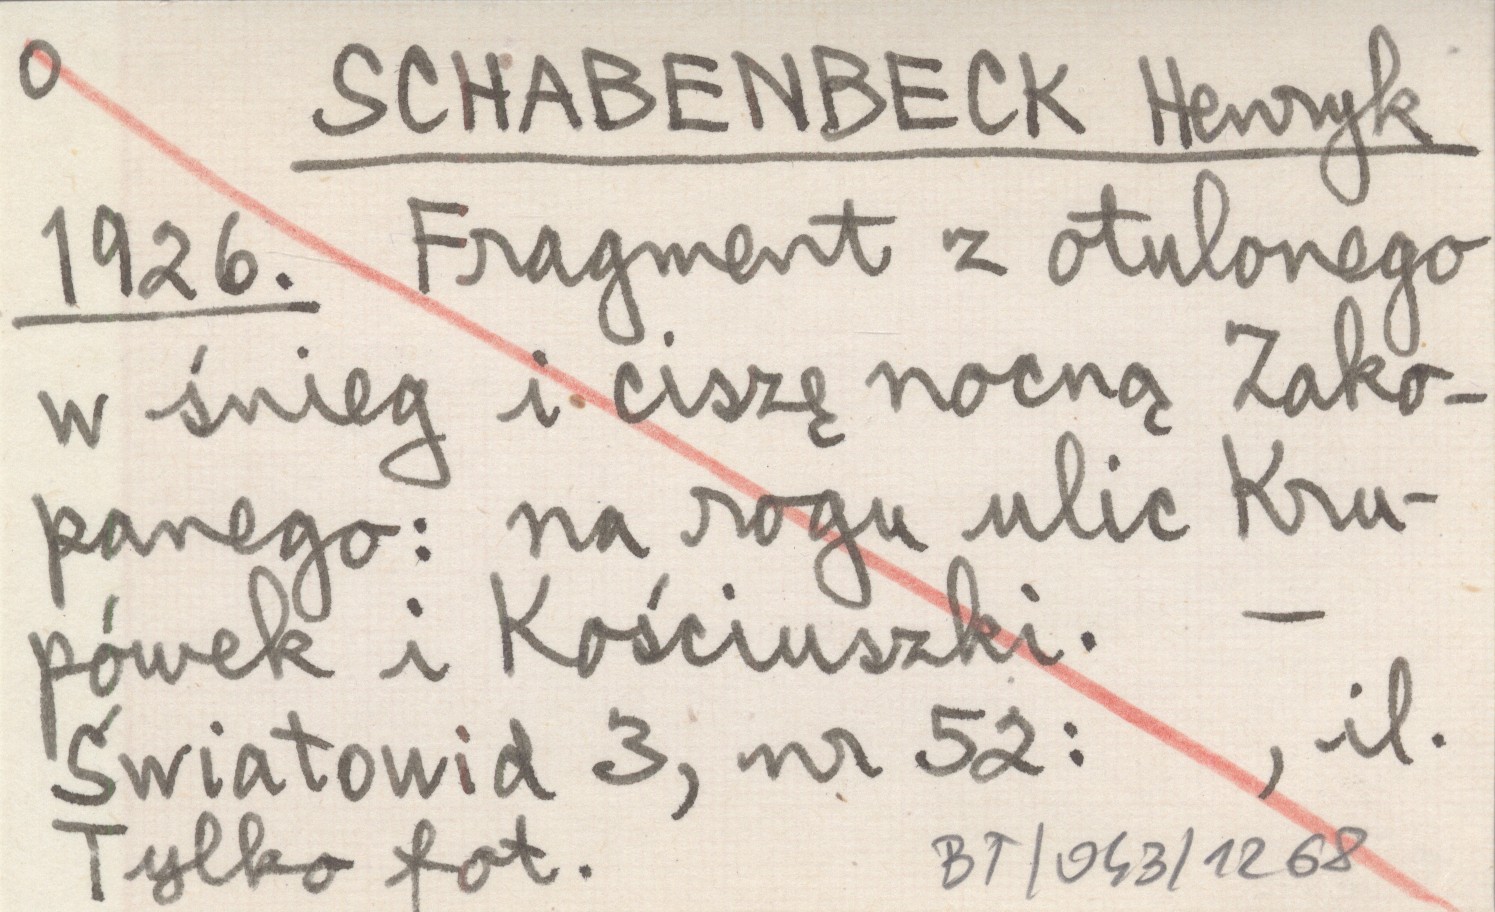 O SCHABENBECK Henryk
1926. Fragment z otulonego
w śnieg i ciszę nocną Zako-
panego: na rogu ulic Kru-
pówek i Kościuszki. —
Światowid 3, nr 52: , il.
Tylko fot. BT/043/1268